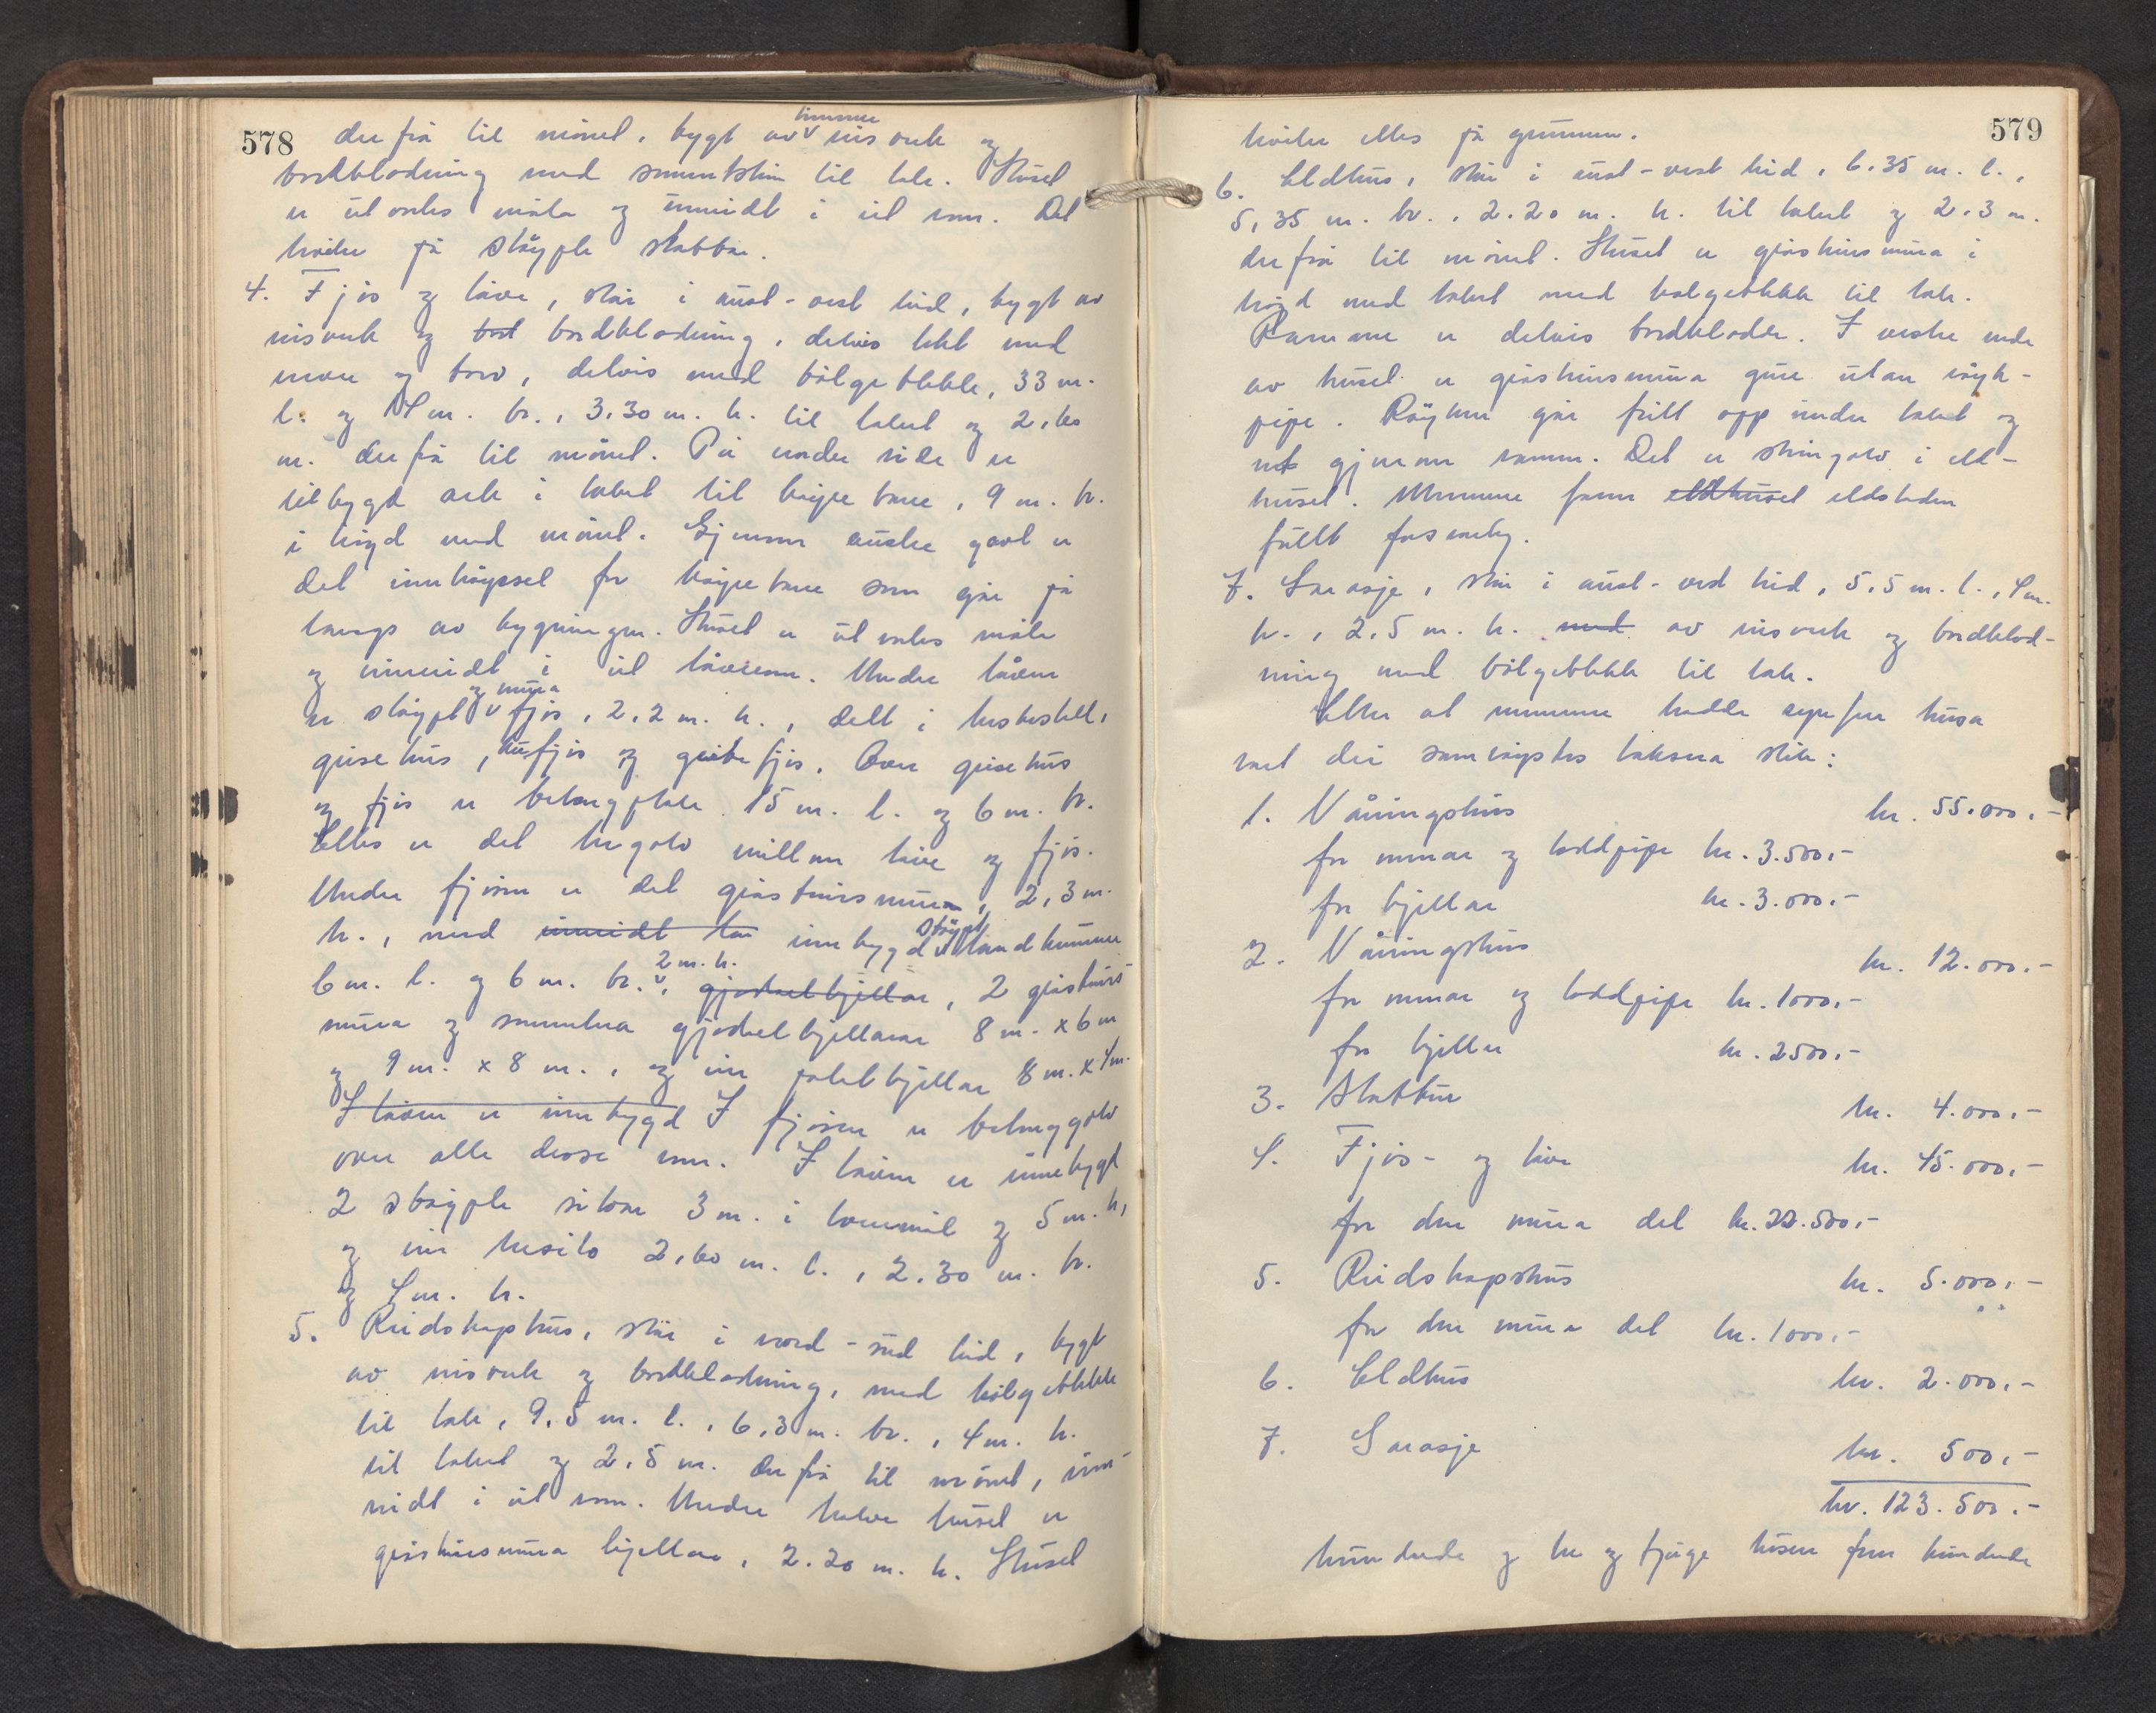 578
derfrå til mønet, bygt av timmer reisverk og
bordkledning med sementstein til tak. Huset
er utvortes måla og innreidt i eit rom. Det
kviler på støypte stabbar.
4. Fjøs og løve, står i aust-vest leid, bygt av
reisverk og bord bordkledning, delvis tekt med
never og torv, delvis med bølgeblekk, 33 m.
l. og 14 m. br., 3,30 m. h. til taket og 2,60
m. derfrå til mønet. På nordre side er
tilbygt ark i taket til køyre bane, 9 m. br.
i høgd med mønet. Gjennom austre gavl er
det innkøyrsel for køyrebane som går på
langs av bygningen. Huset er utvortes måla
og innreidt i eit løverom. Under løven
er støypt og mura fjøs, 2,2 m. h., delt i hestestall,
grisehus, kufjøs og geitefjøs. Over grisehus
og fjøs er betongplate 15 m. l. og 6 m. br.
Elles er det tregolv millom løve og fjøs.
Under fjøsen er det gråsteinsmurar, 2,3 m.
h., med innreidt lan innbygd støypt landkumme
6 m. l. og 6 m. br. 2 m. h., gjødselkjellar, 2 gråsteins
mura og sementera gjødselkjellarar 8 m. x 6 m
og 9 m. x 8 m., og ein potetkjellar 8 m. x 4 m.
I løven er innbygd I fjøsen er betonggolv
over alle desse rom. I løven er innebygt
2 støypte siloar 3 m. i tverrmål og 5 m. h.
og ein tresilo 2,60 m. l., 2.30 m. br.
og 4 m. h.
5. Reidskaphus, står i nord-sud leid, bygt
av reisverk og bordkledning, med bølgeblekk
til tak, 9,5 m. l., 6,3 m. br., 4 m. h.
til taket og 2,5 m. derfrå til mønet, inn-
reidt i eit rom. Under halve huset er
gråsteinsmura kjellar, 2.20 m. h. Huset
579
kviler elles på grunnen.
6. Eldhus, står i aust-vest leid, 6.35 m. l.,
5,35 m. br., 2.20 m. h. til taket og 2.3 m.
derfrå til mønet. Huset er gråsteinsmura i
høgd med taket med bølgeblekk til tak.
Rommene er delvis bordkledde. I vestre ende
av huset er gråsteinsmura grue utan røyk-
pipe. Røyken går fritt opp under taket og
ut gjennom rommet. Det er steingolv i eld-
huset. Mennene fann eldhuset eldstaden
fullt forsvarleg.
7. Garasje, står i aust-vest leid, 5,5 m. l., 4 m.
br., 2,5 m. h. med av reisverk og bordkled-
ning med bølgeblekk til tak.
Etter at mennene hadde synfare husa
vart dei samrøystes taksera slik:
1. Våningshus kr. 55.000.-
for murar og teglpipe kr. 3.500.-
for kjellar kr. 3.000.-
2. Våningshus kr. 12.000.-
for murar og teglpipe kr. 1000.-
for kjellar kr. 2500.-
3. Stabbur kr. 4.000.-
4. Fjøs- og løve kr. 45.000.-
for den mura del kr. 22.500.-
5. Reidskapshus kr. 5.000.-
for den mura del kr. 1000.-
6. Eldhus kr. 2.000.-
7. Garasje kr. 500.-
kr. 123.500.-
hundrede og tre og tjuge tusen fem hundrede